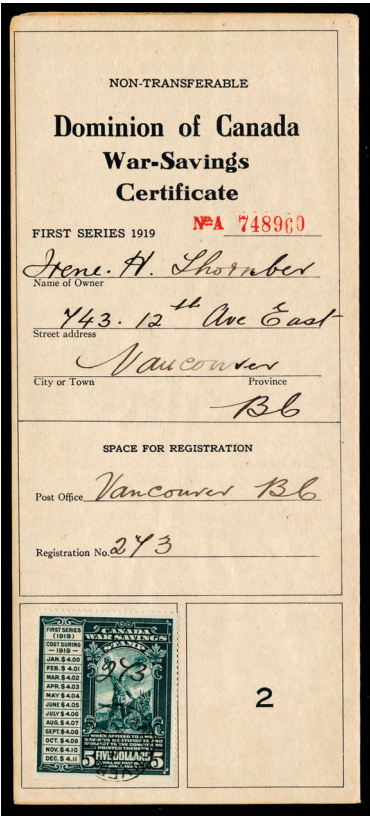 NON-TRANSFERABLE
Dominion of Canada
War-Savings
Certificate
FIRST SERIES 1919 No A 748960
Irene. H. Thornber
Name of Owner
743. 12th Ave East
Street address
Vancouver
City or Town Province
BC
SPACE FOR REGISTRATION
Post Office Vancouver BC
Registration No. 273
FIRST SERIES
(1919)
COST DURING
-1919-
JAN. $ 4.00
FEB. $ 4.01
MAR. $ 4.02
APR. $ 4.03
MAY $ 4.04
JUNE $ 4.05
JULY $ 4.06
AUG. $ 4.07
SEPT. $ 4.08
OCT. $ 4.09
NOV. $ 4.10
DEC. $ 4.11
CANADA
WAR SAVINGS
STAMP
273
WHEN AFFIXED TO A WAR
SAVINGS CERTIFICATE AND
SUBJECT TO THE CONDITIONS
PRINTED THEREON
5 FIVE DOLLARS 5
2